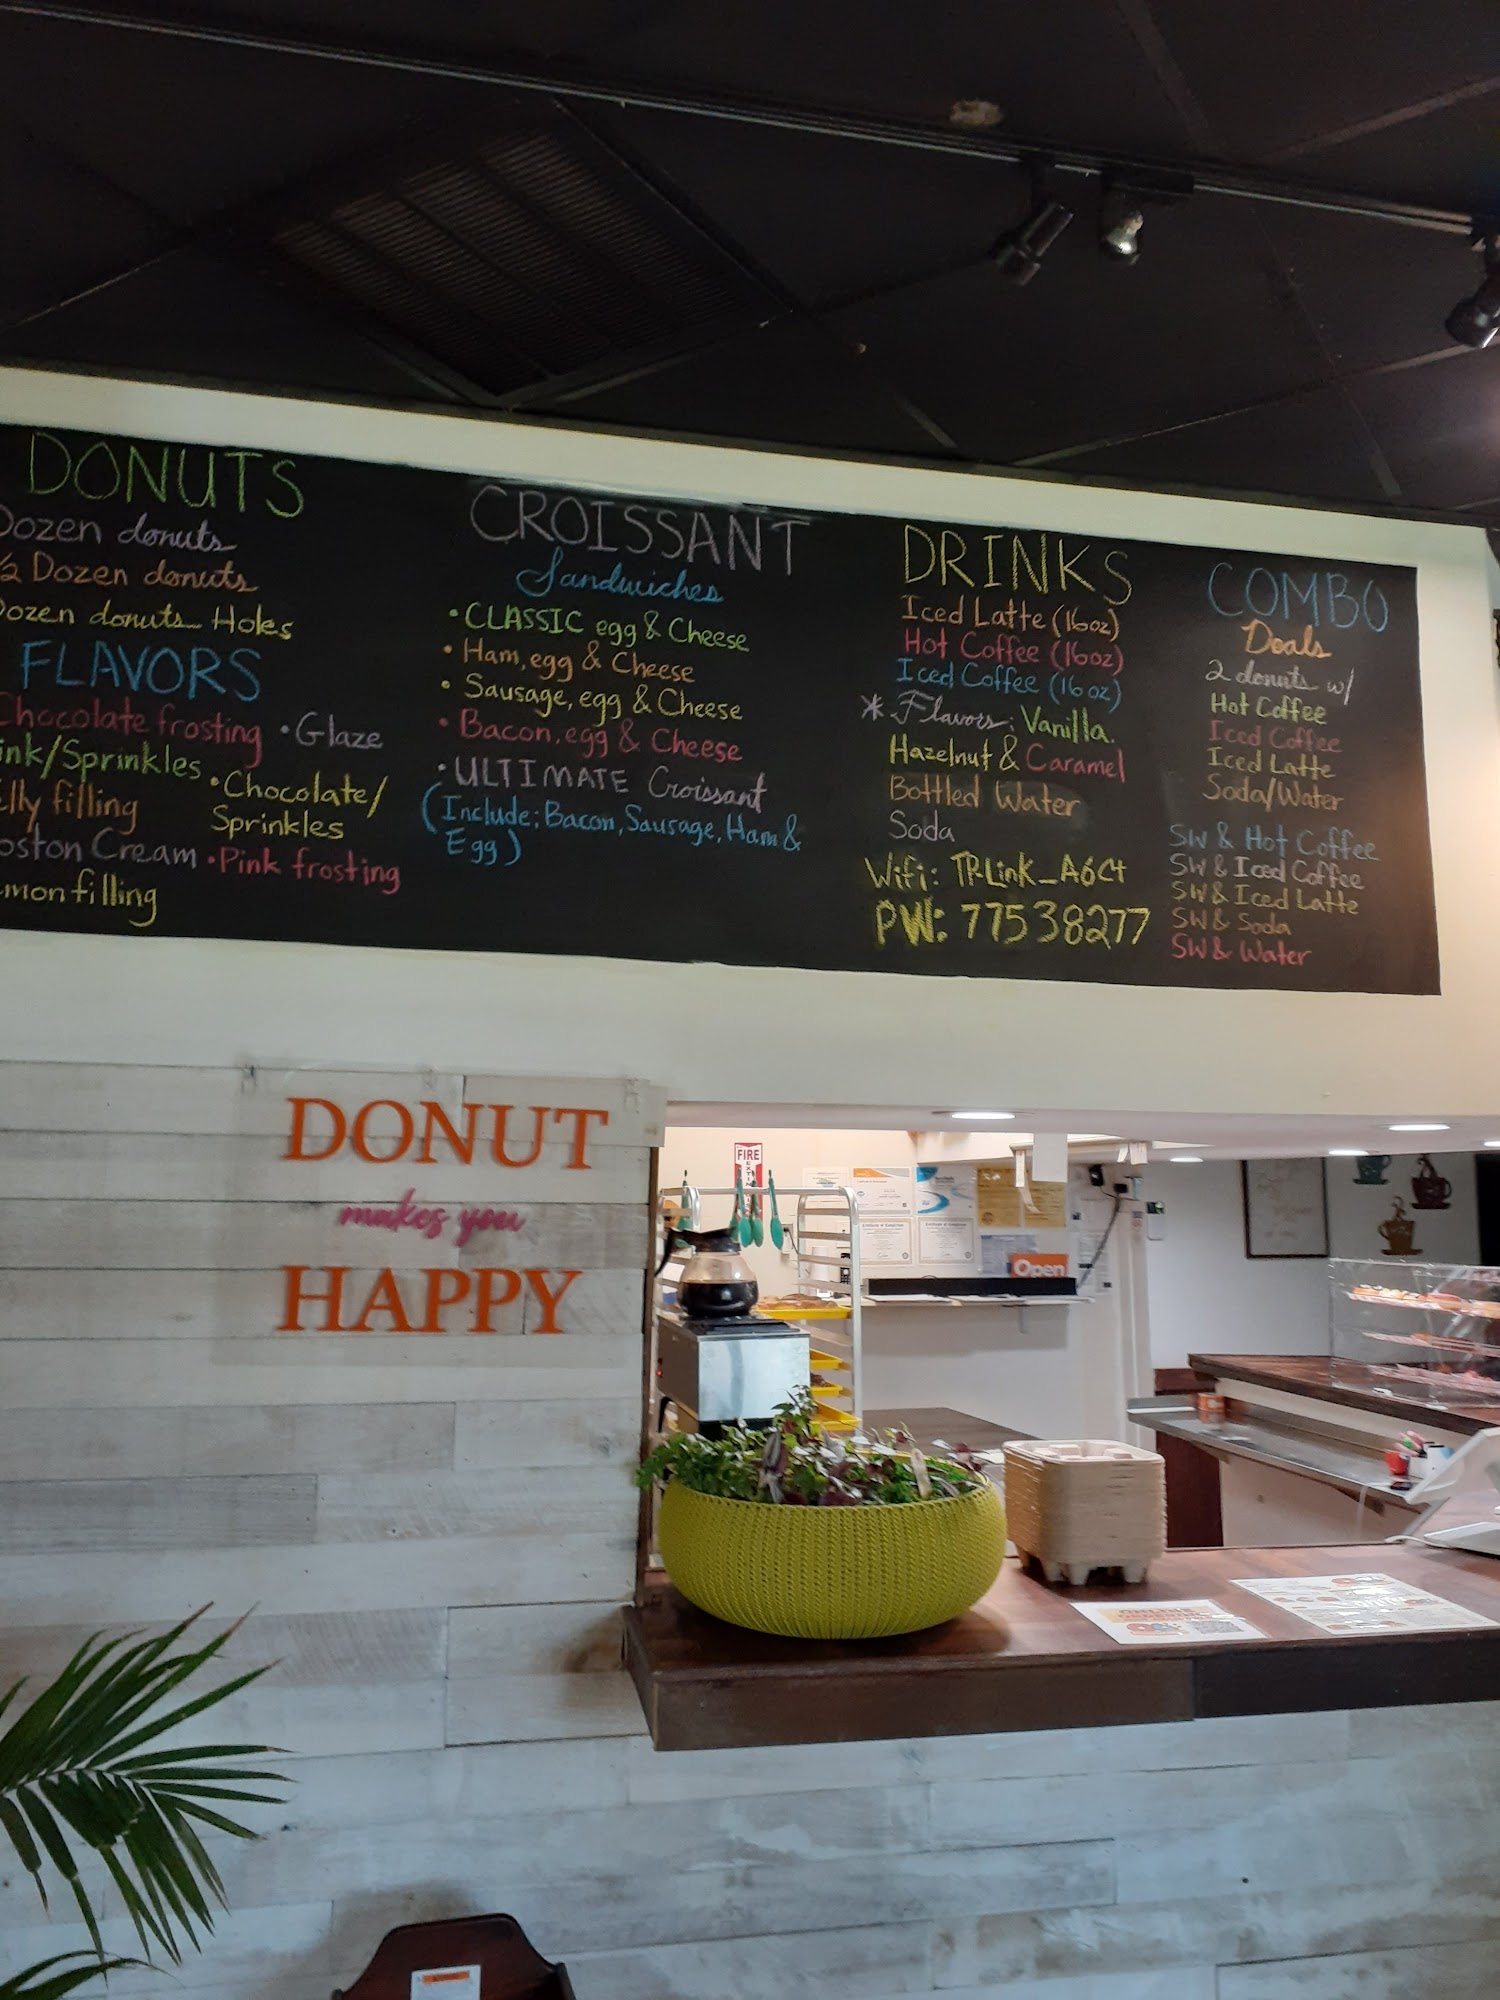 DONUTS
Dozen donuts
½ Dozen donuts
Dozen donuts Holes
FLAVORS
Chocolate frosting
ink/Sprinkles
elly filling
oston Cream
mon filling
• Glaze
• Chocolate/
Sprinkles
• Pink frosting
CROISSANT
Sandwiches
• CLASSIC egg & Cheese
• Ham, egg & Cheese
• Sausage, egg & Cheese
• Bacon, egg & Cheese
• ULTIMATE Croissant
(Include; Bacon, Sausage, Ham &
Egg)
DRINKS
Iced Latte (16oz)
Hot Coffee (16oz)
Iced Coffee (16oz)
* Flavors: Vanilla.
Hazelnut & Caramel
Bottled Water
Soda
Wifi: TP-Link_A6C4
PW: 77538277
COMBO
Deals
2 donuts w/
Hot Coffee
Iced Coffee
Iced Latte
Soda/Water
SW & Hot Coffee
SW & Iced Coffee
SW & Iced Latte
SW & Soda
SW & Water
DONUT
makes you
HAPPY
FIRE
Open